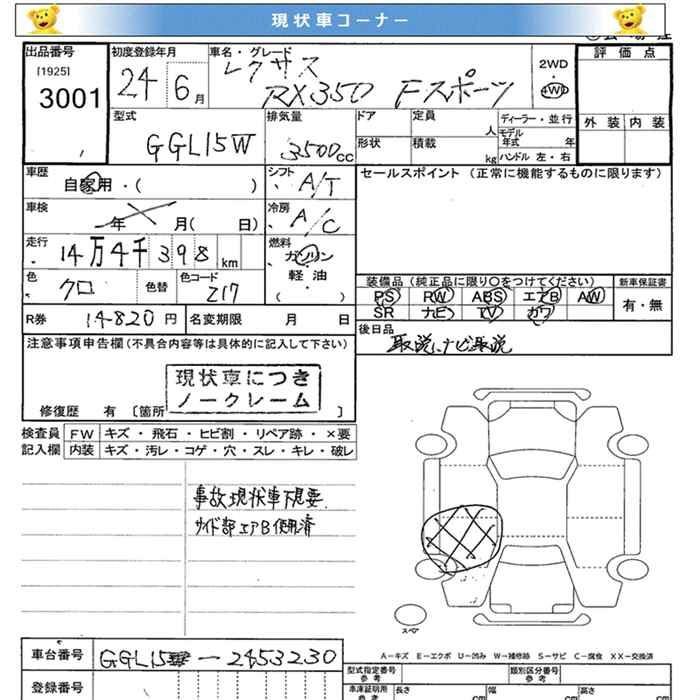 現状車コーナー
出品番号 初度登録年月 車名・グレード 2WD 評価点
[1925] 24 6月 レクサス 4WD
3001 RX350 Fスポーツ
型式 排気量 ドア 定員 人 ディーラー・並行 外装 内装
GGL15W 3500cc 形状 積載 kg モデル年式 年
ハンドル 左・右
車歴 自家用・( ) シフト A/T セールスポイント (正常に機能するものに限ります)
車検 年 月( 日) 冷房 A/C
走行 14万4千398km 燃料 ガソリン
軽油
( )
色 クロ 色替 色コード 217 装備品 (純正品に限り○をつけてください) 新車保証書
PS RW ABS エアB AW 有・無
SR ナビ TV カワ
R券 14-820円 名変期限 月 日 後日品
取説、ナビ取説
注意事項申告欄(不具合内容等は具体的に記入して下さい)
現状車につき
ノークレーム
修復歴 有 [箇所 ]
検査員 FW キズ・飛石・ヒビ割・リペア跡・×要
記入欄 内装 キズ・汚レ・コゲ・穴・スレ・キレ・破レ
事故現状車下見要
サイド部エアB使用済
スペア
A-キズ E-エクボ U-凹み W-補修跡 S-サビ C-腐食 XX-交換済
車台番号 GGL15W-2453230 型式指定番号 参考 類別区分番号 参考
登録番号 車庫証明用 参考 長さ cm 幅 cm 高さ cm